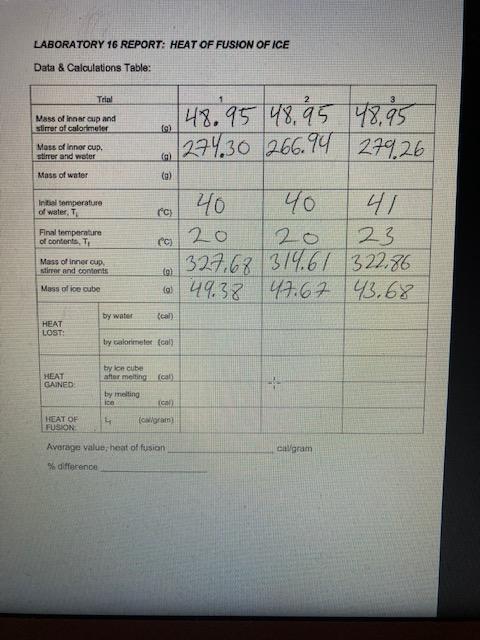 LABORATORY 16 REPORT: HEAT OF FUSION OF ICE
Data & Calculations Table:
Trial 1 2 3
Mass of inner cup and
stirrer of calorimeter (g) 48.95 48.95 48.95
Mass of inner cup,
stirrer and water (g) 274.30 266.94 279.26
Mass of water (g)
Initial temperature
of water, Ti (°C) 40 40 41
Final temperature
of contents, Tf (°C) 20 20 23
Mass of inner cup,
stirrer and contents (g) 327.68 314.61 322.86
Mass of ice cube (g) 49.38 47.67 43.68
HEAT
LOST:
by water (cal)
by calorimeter (cal)
HEAT
GAINED:
by ice cube
after melting (cal)
by melting
ice (cal)
HEAT OF
FUSION:
Lf (cal/gram)
Average value, heat of fusion cal/gram
% difference